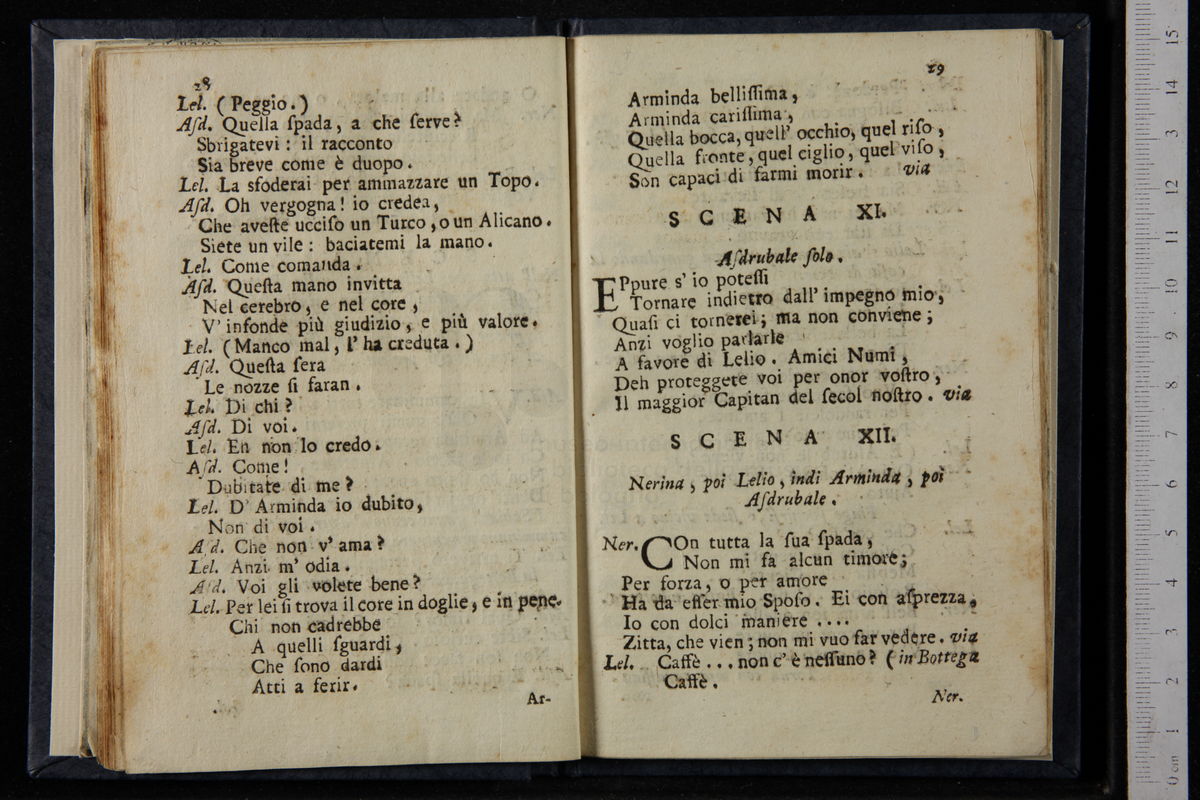 28
Lel. ( Peggio. )
Aſd. Quella ſpada, a che ſerve?
Sbrigatevi : il racconto
Sia breve come è duopo.
Lel. La sfoderai per ammazzare un Topo.
Aſd. Oh vergogna! io credea,
Che aveſte ucciſo un Turco, o un Alicano.
Siete un vile : baciatemi la mano.
Lel. Come comanda.
Aſd. Queſta mano invitta
Nel cerebro, e nel core,
V' infonde più giudizio, e più valore.
Lel. ( Manco mal, l' ha creduta. )
Aſd. Queſta ſera
Le nozze ſi faran.
Lel. Di chi?
Aſd. Di voi.
Lel. Eh non lo credo.
Aſd. Come!
Dubitate di me?
Lel. D' Arminda io dubito,
Non di voi.
Aſd. Che non v' ama?
Lel. Anzi m' odia.
Aſd. Voi gli volete bene?
Lel. Per lei ſi trova il core in doglie, e in pene.
Chi non cadrebbe
A quelli ſguardi,
Che ſono dardi
Atti a ferir.
Ar-
29
Arminda belliſſima,
Arminda cariſſima,
Quella bocca, quell' occhio, quel riſo,
Quella fronte, quel ciglio, quel viſo,
Son capaci di farmi morir. via
SCENA XI.
Aſdrubale ſolo.
EPpure s' io poteſſi
Tornare indietro dall' impegno mio,
Quaſi ci tornerei; ma non conviene;
Anzi voglio parlarle
A favore di Lelio. Amici Numi,
Deh proteggete voi per onor voſtro,
Il maggior Capitan del ſecol noſtro. via
SCENA XII.
Nerina, poi Lelio, indi Arminda, poi
Aſdrubale.
Ner. COn tutta la ſua ſpada,
Non mi fa alcun timore;
Per forza, o per amore
Ha da eſſer mio Spoſo. Ei con aſprezza,
Io con dolci maniere ....
Zitta, che vien; non mi vuo far vedere. via
Lel. Caffè ... non c' è neſſuno? ( in Bottega
Caffè.
Ner.
0 cm 1 2 3 4 5 6 7 8 9 10 11 12 13 14 15